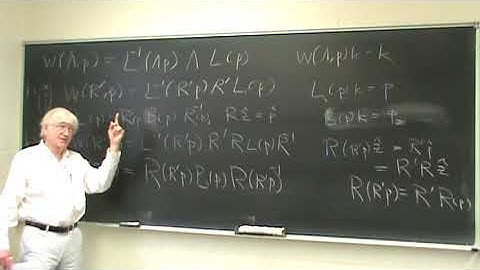 W(Λ,p) = L⁻¹(Λp) Λ L(p)
W(R',p) = L⁻¹(R'p) R' L(p)
(p) = R(p) B(p) R⁻¹(p), R ẑ = p̂
= L⁻¹(R'p) R' R L(p) R⁻¹
= R(R'p) B(p) R(R'p)⁻¹
W(Λ,p)k = k
L(p)k = p
B(p)k = p_z
R(R'p)ẑ = R'p̂
= R'Rẑ
R(R'p) = R'R(p)